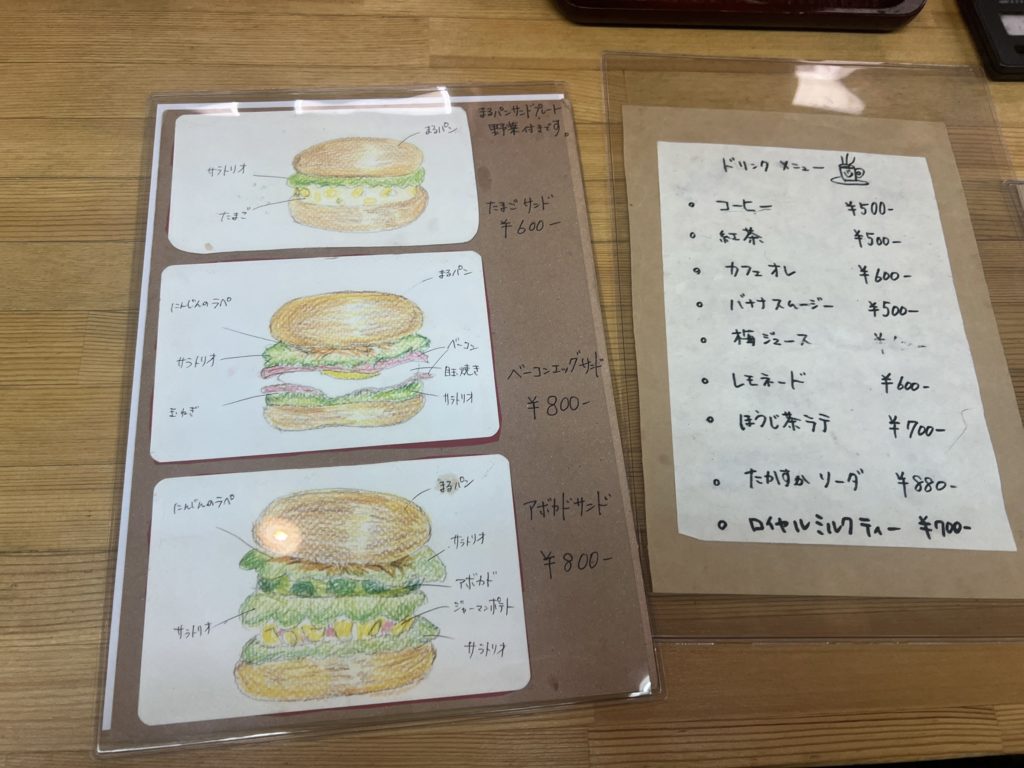 まるパンサンドプレート
野菜付きです。
まるパン
サラトリオ
たまご
たまごサンド
¥600-
まるパン
にんじんのラペ
サラトリオ
ベーコン
目玉焼き
サラトリオ
玉ねぎ
ベーコンエッグサンド
¥800-
まるパン
にんじんのラペ
サラトリオ
アボカド
ジャーマンポテト
サラトリオ
サラトリオ
アボカドサンド
¥800-
ドリンクメニュー
コーヒー ¥500-
紅茶 ¥500-
カフェオレ ¥600-
バナナスムージー ¥500-
梅ジュース
レモネード ¥600-
ほうじ茶ラテ ¥700-
たかすか リーダ ¥880-
ロイヤルミルクティー ¥700-